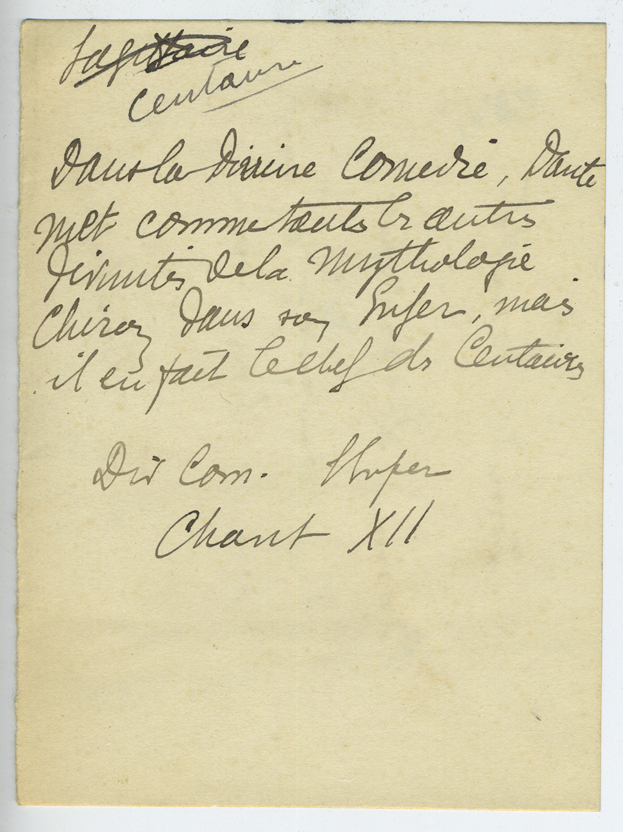 Sagittaire
Centaure
Dans la Divine Comedie, Dante
met comme toutes les autres
divinités de la Mythologie
Chiron dans son Enfer, mais
il en fait le chef des Centaures
Div Com. Enfer
Chant XII